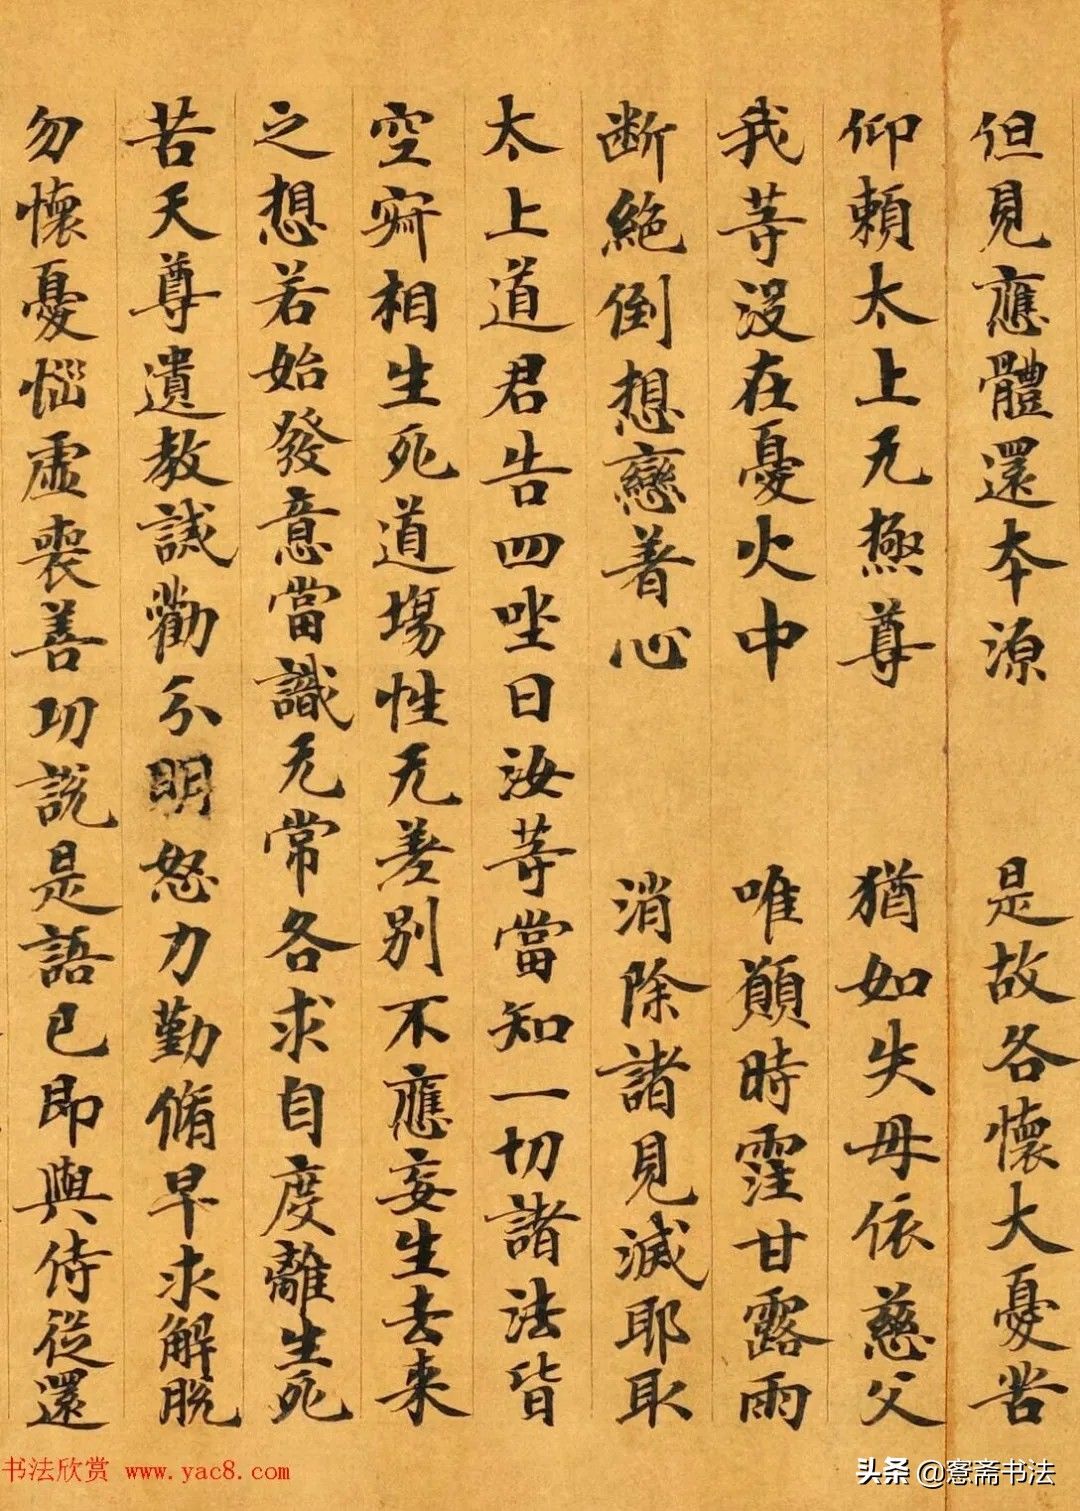 但見應體還本源 是故各懷大憂苦
仰賴太上无極尊 猶如失母依慈父
我等沒在憂火中 唯願時霔甘露雨
斷絕倒想戀著心 消除諸見滅耶取
太上道君告四坐曰汝等當知一切諸法皆
空寂相生死道場性无差別不應妄生去來
之想若始發意當識无常各求自度離生死
苦天尊遺教誡勸分明怒力勤脩早求解脫
勿懷憂惱虛喪善功說是語已即與侍從還
书法欣赏 www.yac8.com
头条 @窓斋书法